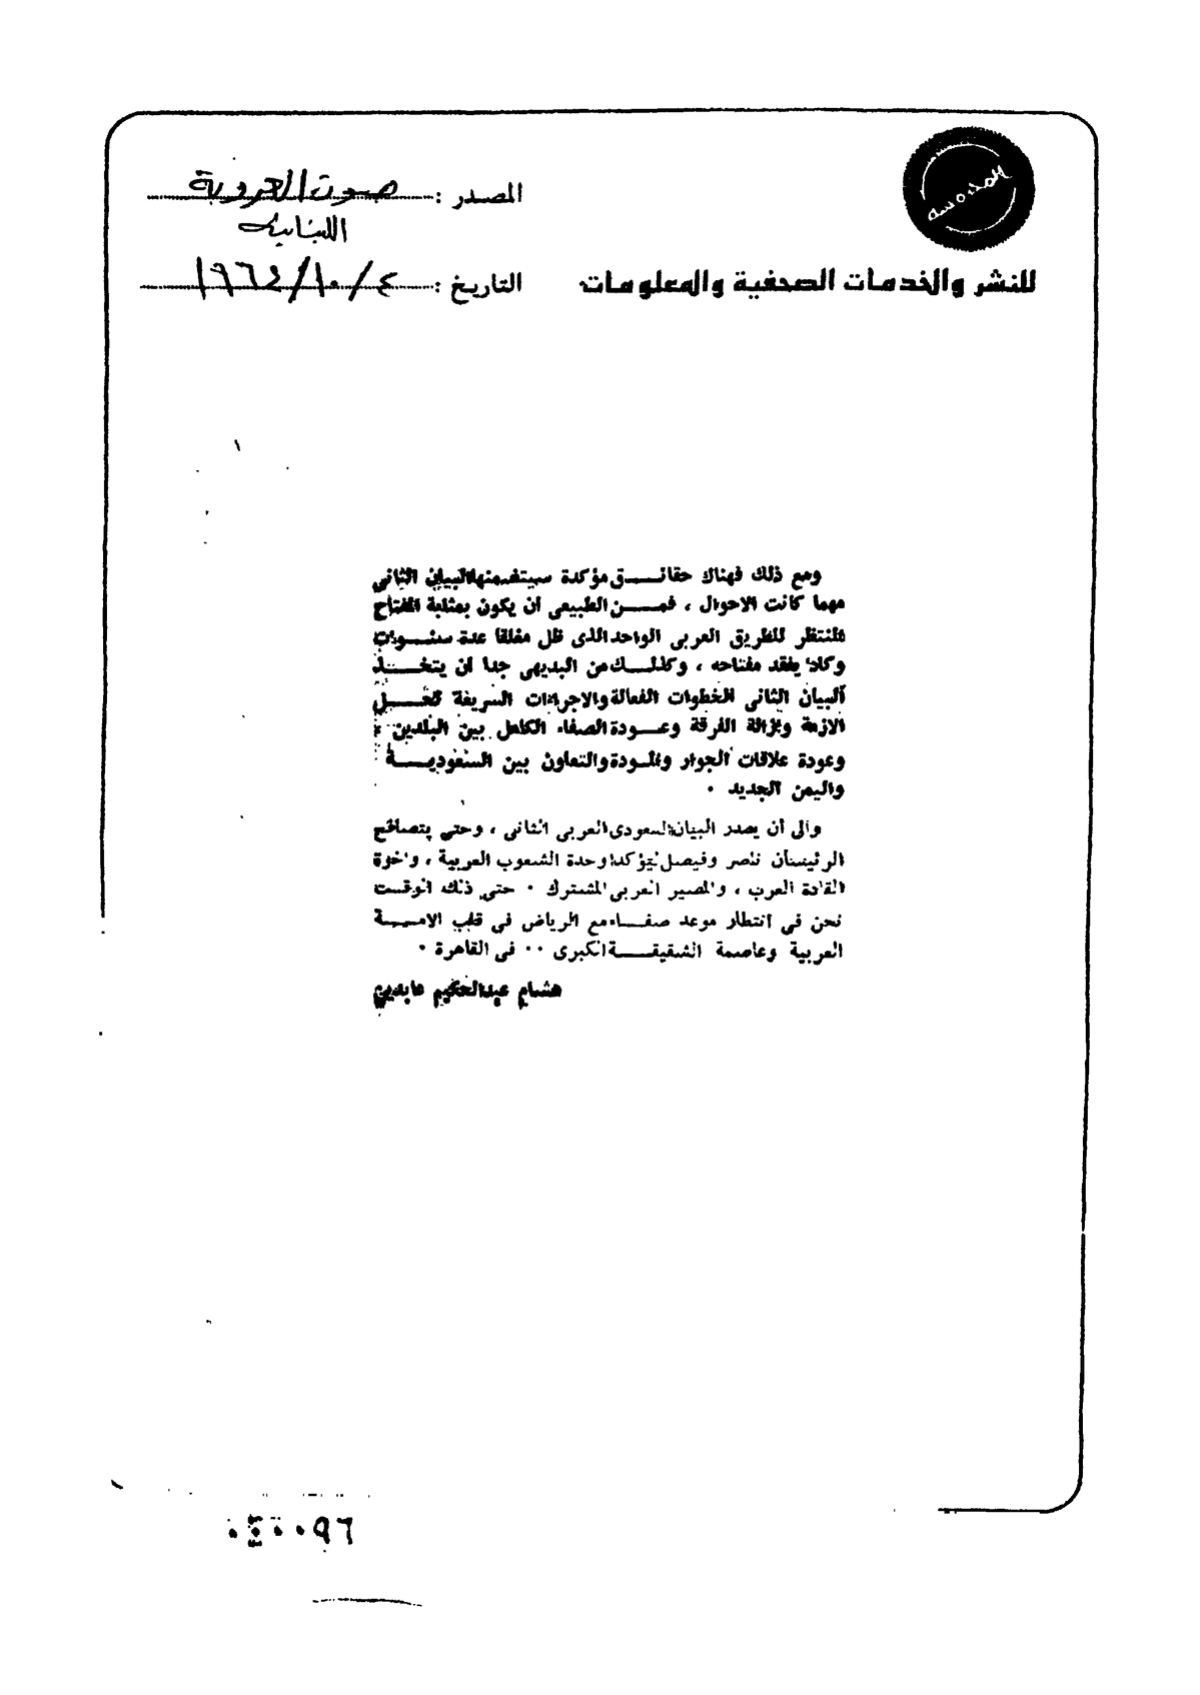 المصدر : صوت العروبة
اللبنانية
للنشر والخدمات الصحفية والمعلومات
التاريخ : ٤/١٠/١٩٦٤
ومع ذلك فهناك حقائق مؤكدة سيتضمنها البيان الثاني
مهما كانت الاحوال ، فمن الطبيعي ان يكون بمثابة المفتاح
المنتظر للطريق العربي الواحد الذي ظل مغلقا عدة سنوات
وكاد يفقد مفتاحه ، وكذلك من البديهي جدا ان يتخذ
البيان الثاني الخطوات الفعالة والاجراءات السريعة لحل
الازمة وإزالة الفرقة وعودة الصفاء الكامل بين البلدين ،
وعودة علاقات الجوار والمودة والتعاون بين السعودية
واليمن الجديد .
والى أن يصدر البيان السعودى العربى الثانى ، وحتى يتصافح
الرئيسان ناصر وفيصل ليؤكدا وحدة الشعوب العربية ، واخوة
القادة العرب ، والمصير العربى المشترك . حتى ذلك الوقت
نحن في انتظار موعد صفاء مع الرياض في قلب الامة
العربية وعاصمة الشقيقة الكبرى .. في القاهرة .
هشام عبدالحكيم عابدين